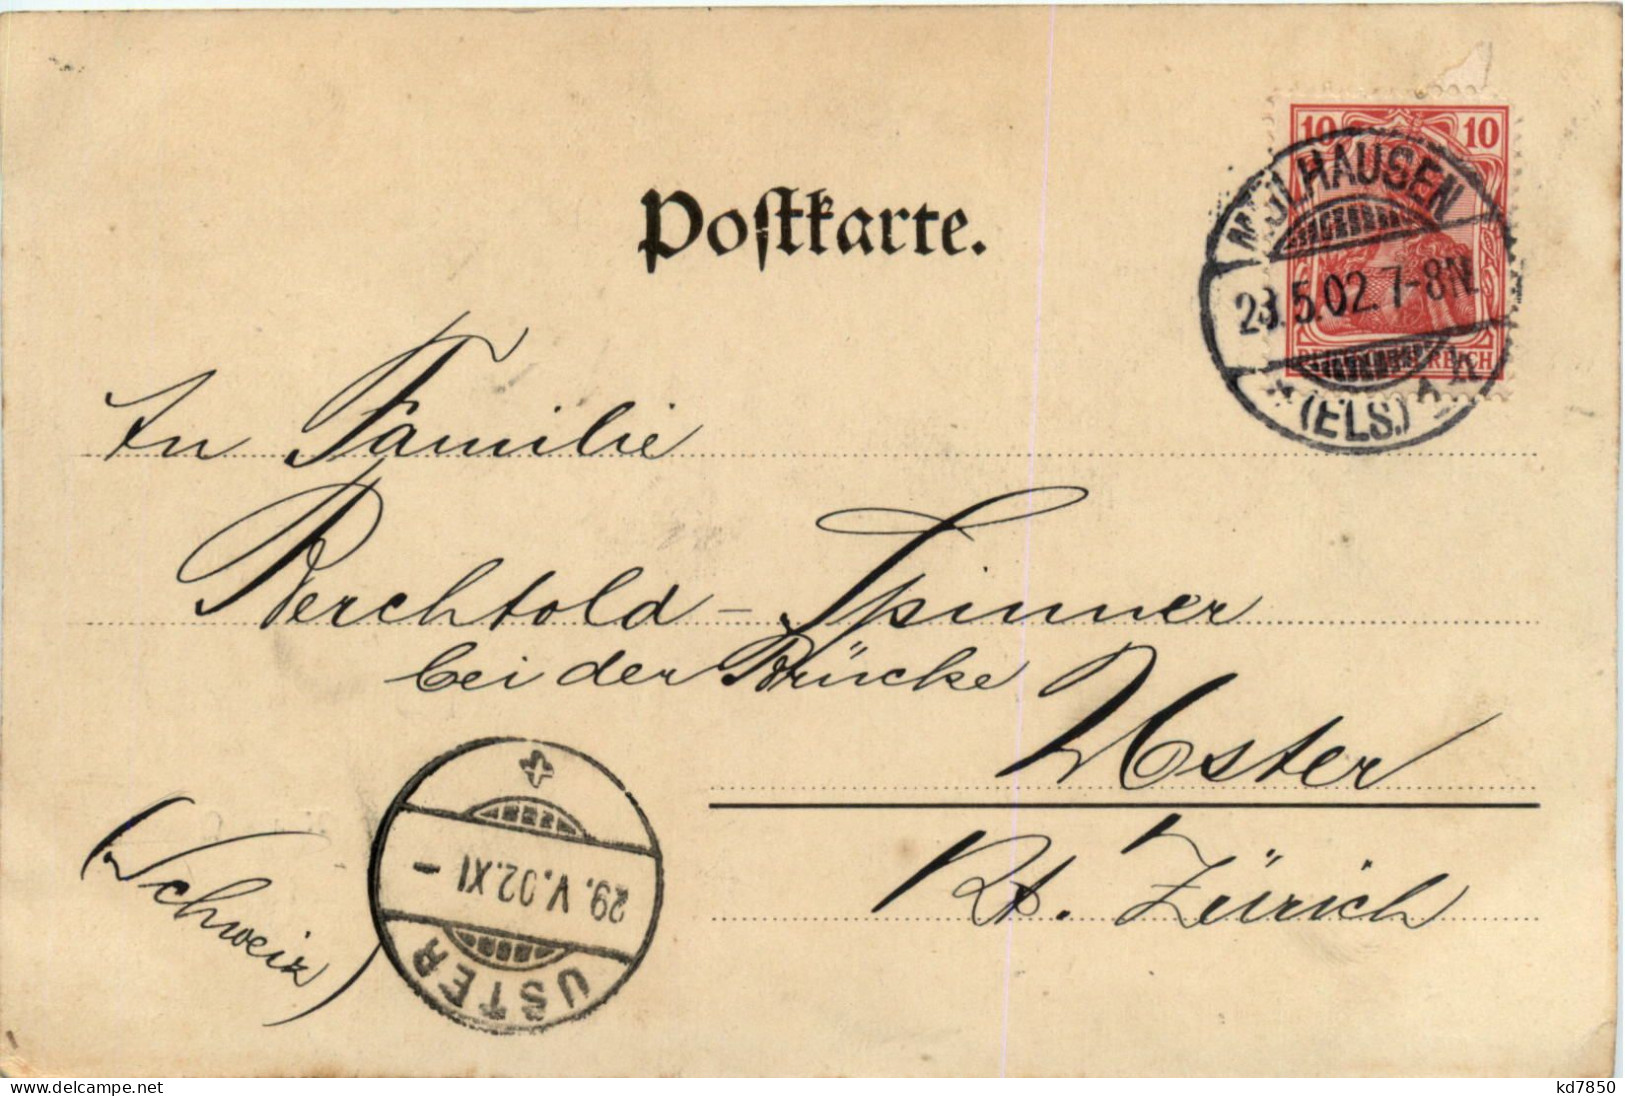 10 10
MÜLHAUSEN
28.5.02.7-8N.
* (ELS.) * h
REICH
Postkarte.
An Familie
Berchtold - Spinner
bei der Brücke
Uster
Kt. Zürich
(Schweiz)
USTER
29.V.02.XI -
www.delcampe.net
kd7850